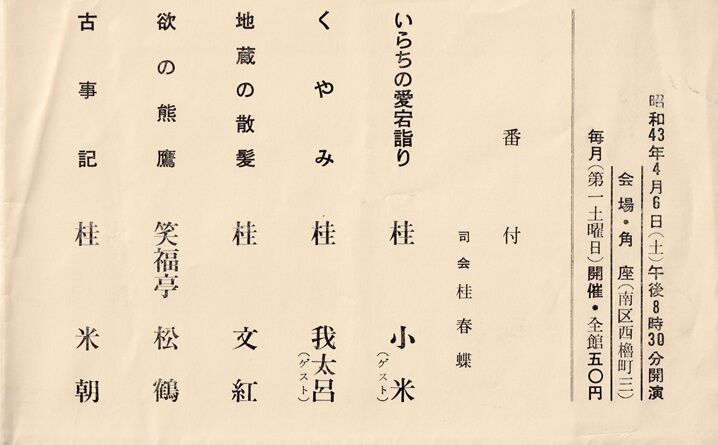 昭和43年4月6日(土)午後8時30分開演
会場・角座(南区西櫓町三)
毎月(第一土曜日)開催・全館五〇円
番付
司会 桂春蝶
いらちの愛宕詣り 桂小米(ゲスト)
くやみ 桂我太呂(ゲスト)
地蔵の散髪 桂文紅
欲の熊鷹 笑福亭松鶴
古事記 桂米朝